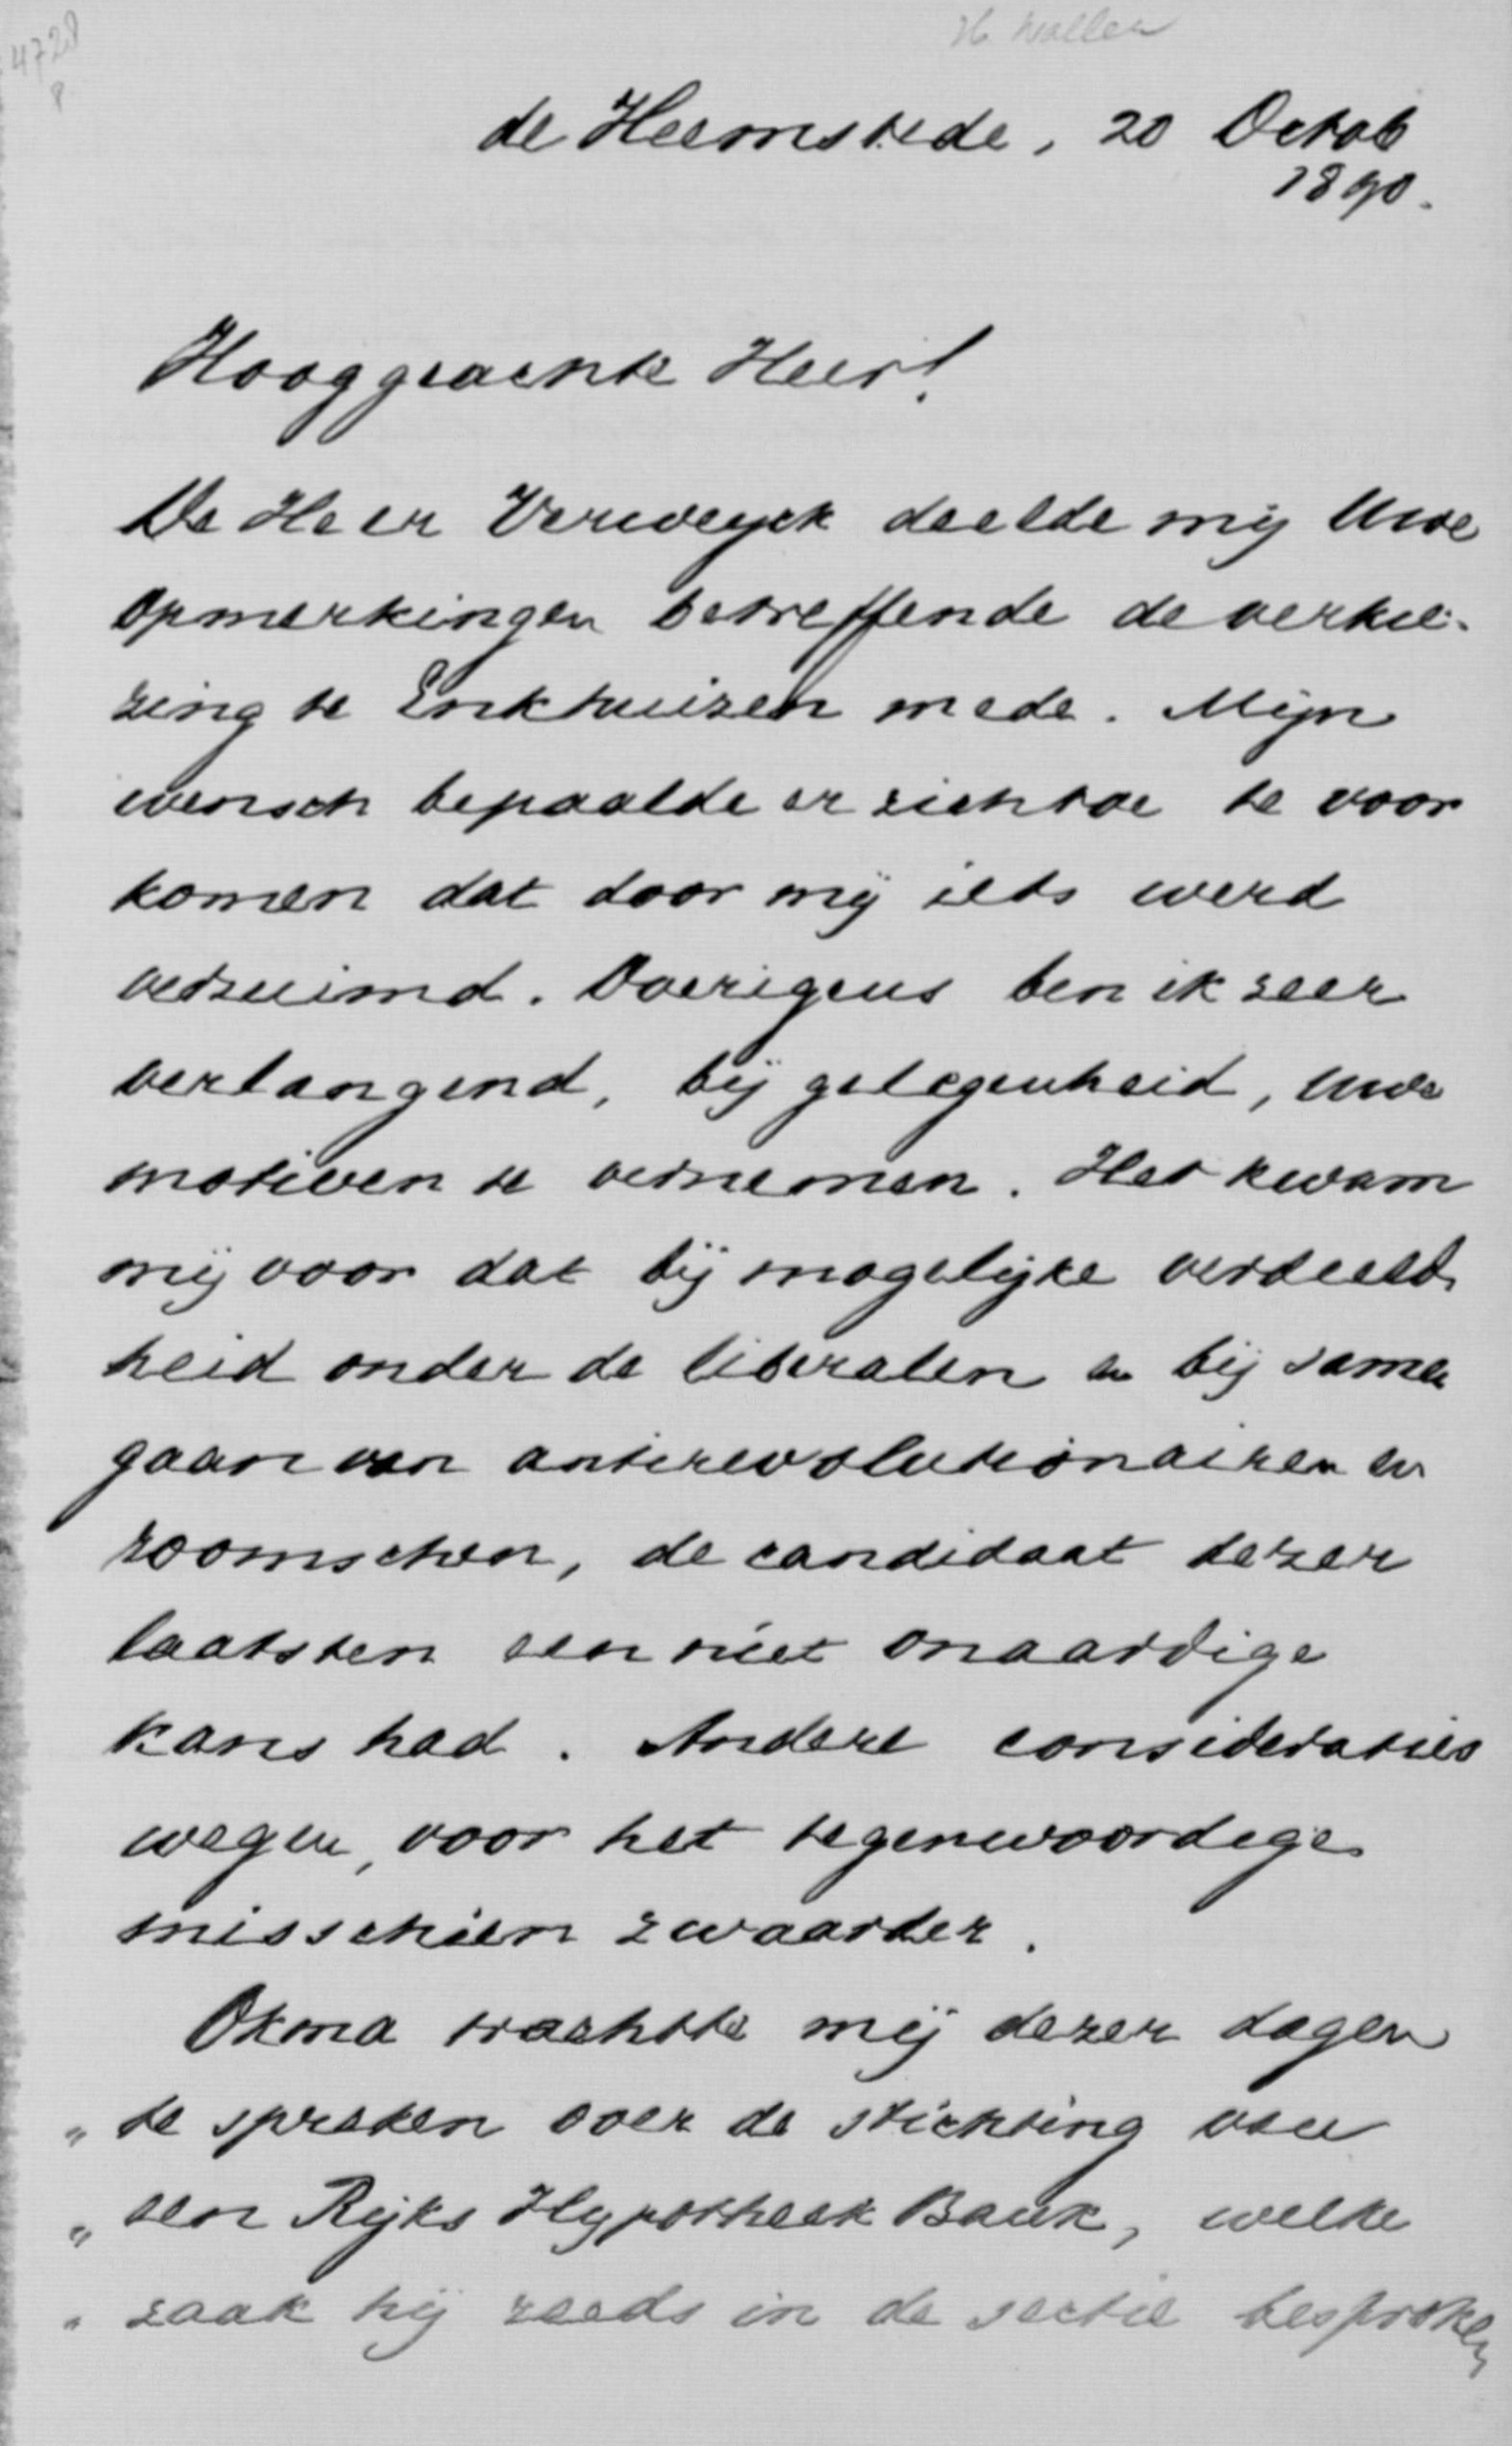 4728
H Waller
de Heemstede, 20 Octob
1890.
Hooggeachte Heer!
De Heer Verweyck deelde mij Uwe
opmerkingen betreffende de verkie-
zing te Enkhuizen mede. Mijn
wensch bepaalde er zich toe te voor
komen dat door mij iets werd
verzuimd. Overigens ben ik zeer
verlangend, bij gelegenheid, Uwe
motieven te vernemen. Het kwam
mij voor dat bij mogelijke verdeeld
heid onder de liberalen en bij samen
gaan van antirevolutionairen en
roomschen, de candidaat dezer
laatsten een niet onaardige
kans had. Andere consideraties
wegen, voor het tegenwoordige
misschien zwaarder.
Okma trachtte mij dezer dagen
„ te spreken over de stichting van
„ een Rijks Hypotheek Bank, welke
„ zaak hij reeds in de sectie besproken